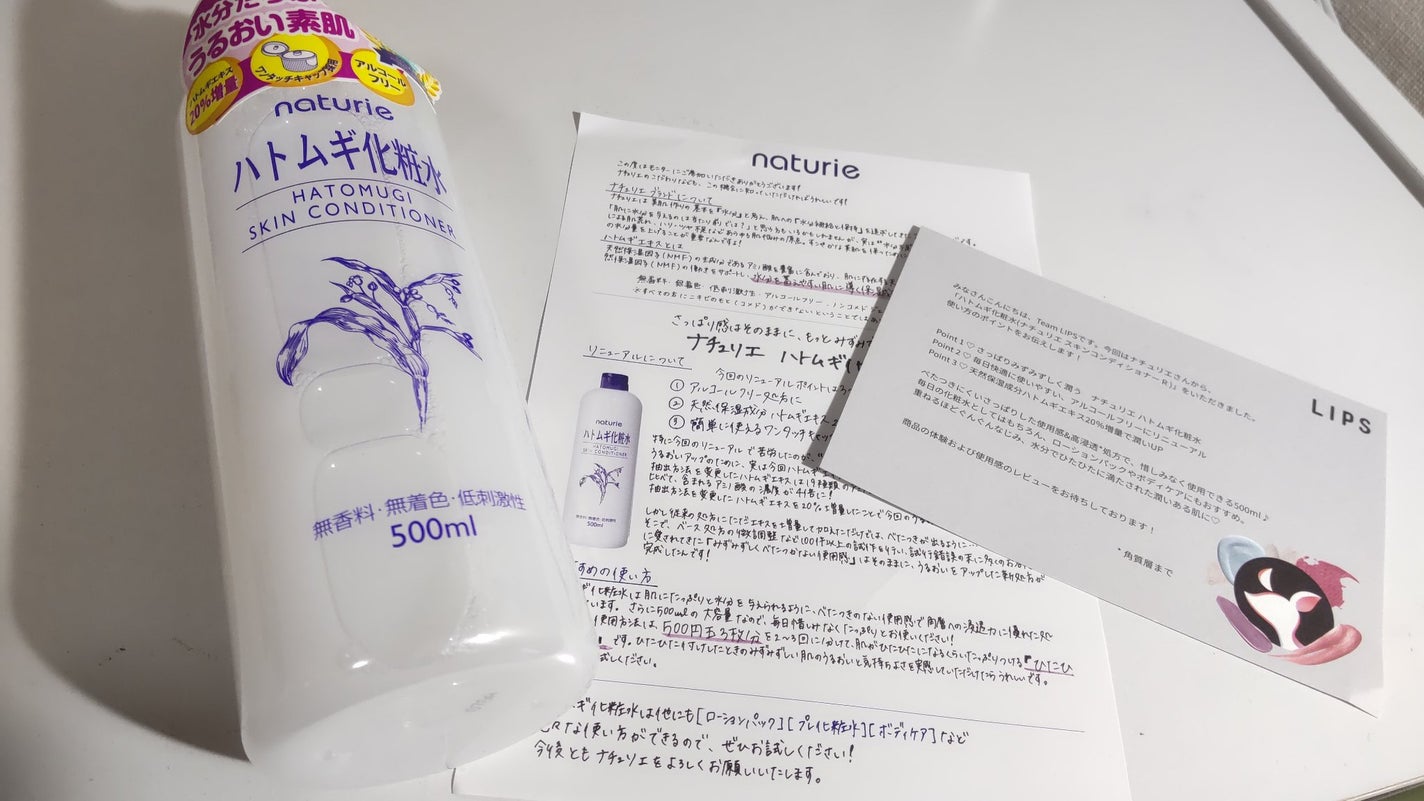 水分たっぷ
うるおい素肌
ハトムギエキス
20%増量
ワンタッチキャップ採用
アルコール
フリー
naturie
ハトムギ化粧水
HATOMUGI
SKIN CONDITIONER
無香料・無着色・低刺激性
500ml
naturie
この度はモニターにご参加いただきありがとうございます!
ナチュリエのこだわりなども、この機会に知っていただければうれしいです!
ナチュリエブランドについて
ナチュリエは素肌作りの基本を『水分』と考え、肌への『水分補給と保持』を追求しま
です。
ハトムギエキスとは
天然保湿因子(NMF)の主成分であるアミノ酸を豊富に含んでおり、肌に
然保湿因子(NMF)の働きをサポートし、水分を蓄えやすい肌に導く保湿
無香料・無着色・低刺激性・アルコールフリー・ノンコメド
※すべての方にニキビのもと(コメド)ができないということでは
さっぱり感はそのままに、もっとみずみず
ナチュリエ ハトムギ化
リニューアルについて
今回のリニューアルポイントは3
① アルコールフリー処方に
② 天然保湿成分 ハトムギエキス2
③ 簡単に使えるワンタッチキャッ
特に今回のリニューアルで苦労したのが、
うるおいアップのために、実は今回ハトムギエキ
抽出方法を変更したハトムギエキスは19種類のア
比べて、含まれるアミノ酸の濃度が44倍に!
抽出方法を変更したハトムギエキスを20%増量したことで今回のうる
しかし従来の処方にただエキスを増量して加えただけでは、べたつきが出るように…
そこで、ベース処方の微調整など100件以上の試作を行い、試行錯誤の末に多くのお
に愛されてきた『みずみずしくべたつかない使用感』はそのままに、うるおいをアップした新処方が
完成したんです!
naturie
ハトムギ化粧水
HATOMUGI
SKIN CONDITIONER
500ml
すめの使い方
ギ化粧水は肌にたっぷりと水分を与えられるように、べたつきのない使用感で角層への浸透力に優れた処
います。さらに500mlの大容量なので、毎日惜しみなくたっぷりとお使いください!
使用方法は、500円玉3枚分を2〜3回に分けて、肌がひたひたになるくらいたっぷりつける『ひたひ
です。ひたひた付けしたときのみずみずしい肌のうるおいと気持ちよさを実感していただけたらうれしいです。
試しください。
ギ化粧水は他にも[ローションパック][プレ化粧水][ボディケア]など
な使い方ができるので、ぜひお試しください!
今後ともナチュリエをよろしくお願いいたします。
LIPS
みなさんこんにちは、Team LIPSです。今回はナチュリエさんから、
「ハトムギ化粧水(ナチュリエ スキンコンディショナー R)」をいただきました。
使い方のポイントをお伝えします!
Point 1♡さっぱりみずみずしく潤う ナチュリエ ハトムギ化粧水
Point 2♡毎日快適に使いやすい、アルコールフリーにリニューアル
Point 3♡天然保湿成分ハトムギエキス20%増量で潤いUP
べたつきにくいさっぱりした使用感&高浸透*処方で、惜しみなく使用できる500ml♪
毎日の化粧水としてはもちろん、ローションパックやボディケアにもおすすめ。
重ねるほどぐんぐんなじみ、水分でひたひたに満たされた潤いある肌に♡
商品の体験および使用感のレビューをお待ちしております!
*角質層まで